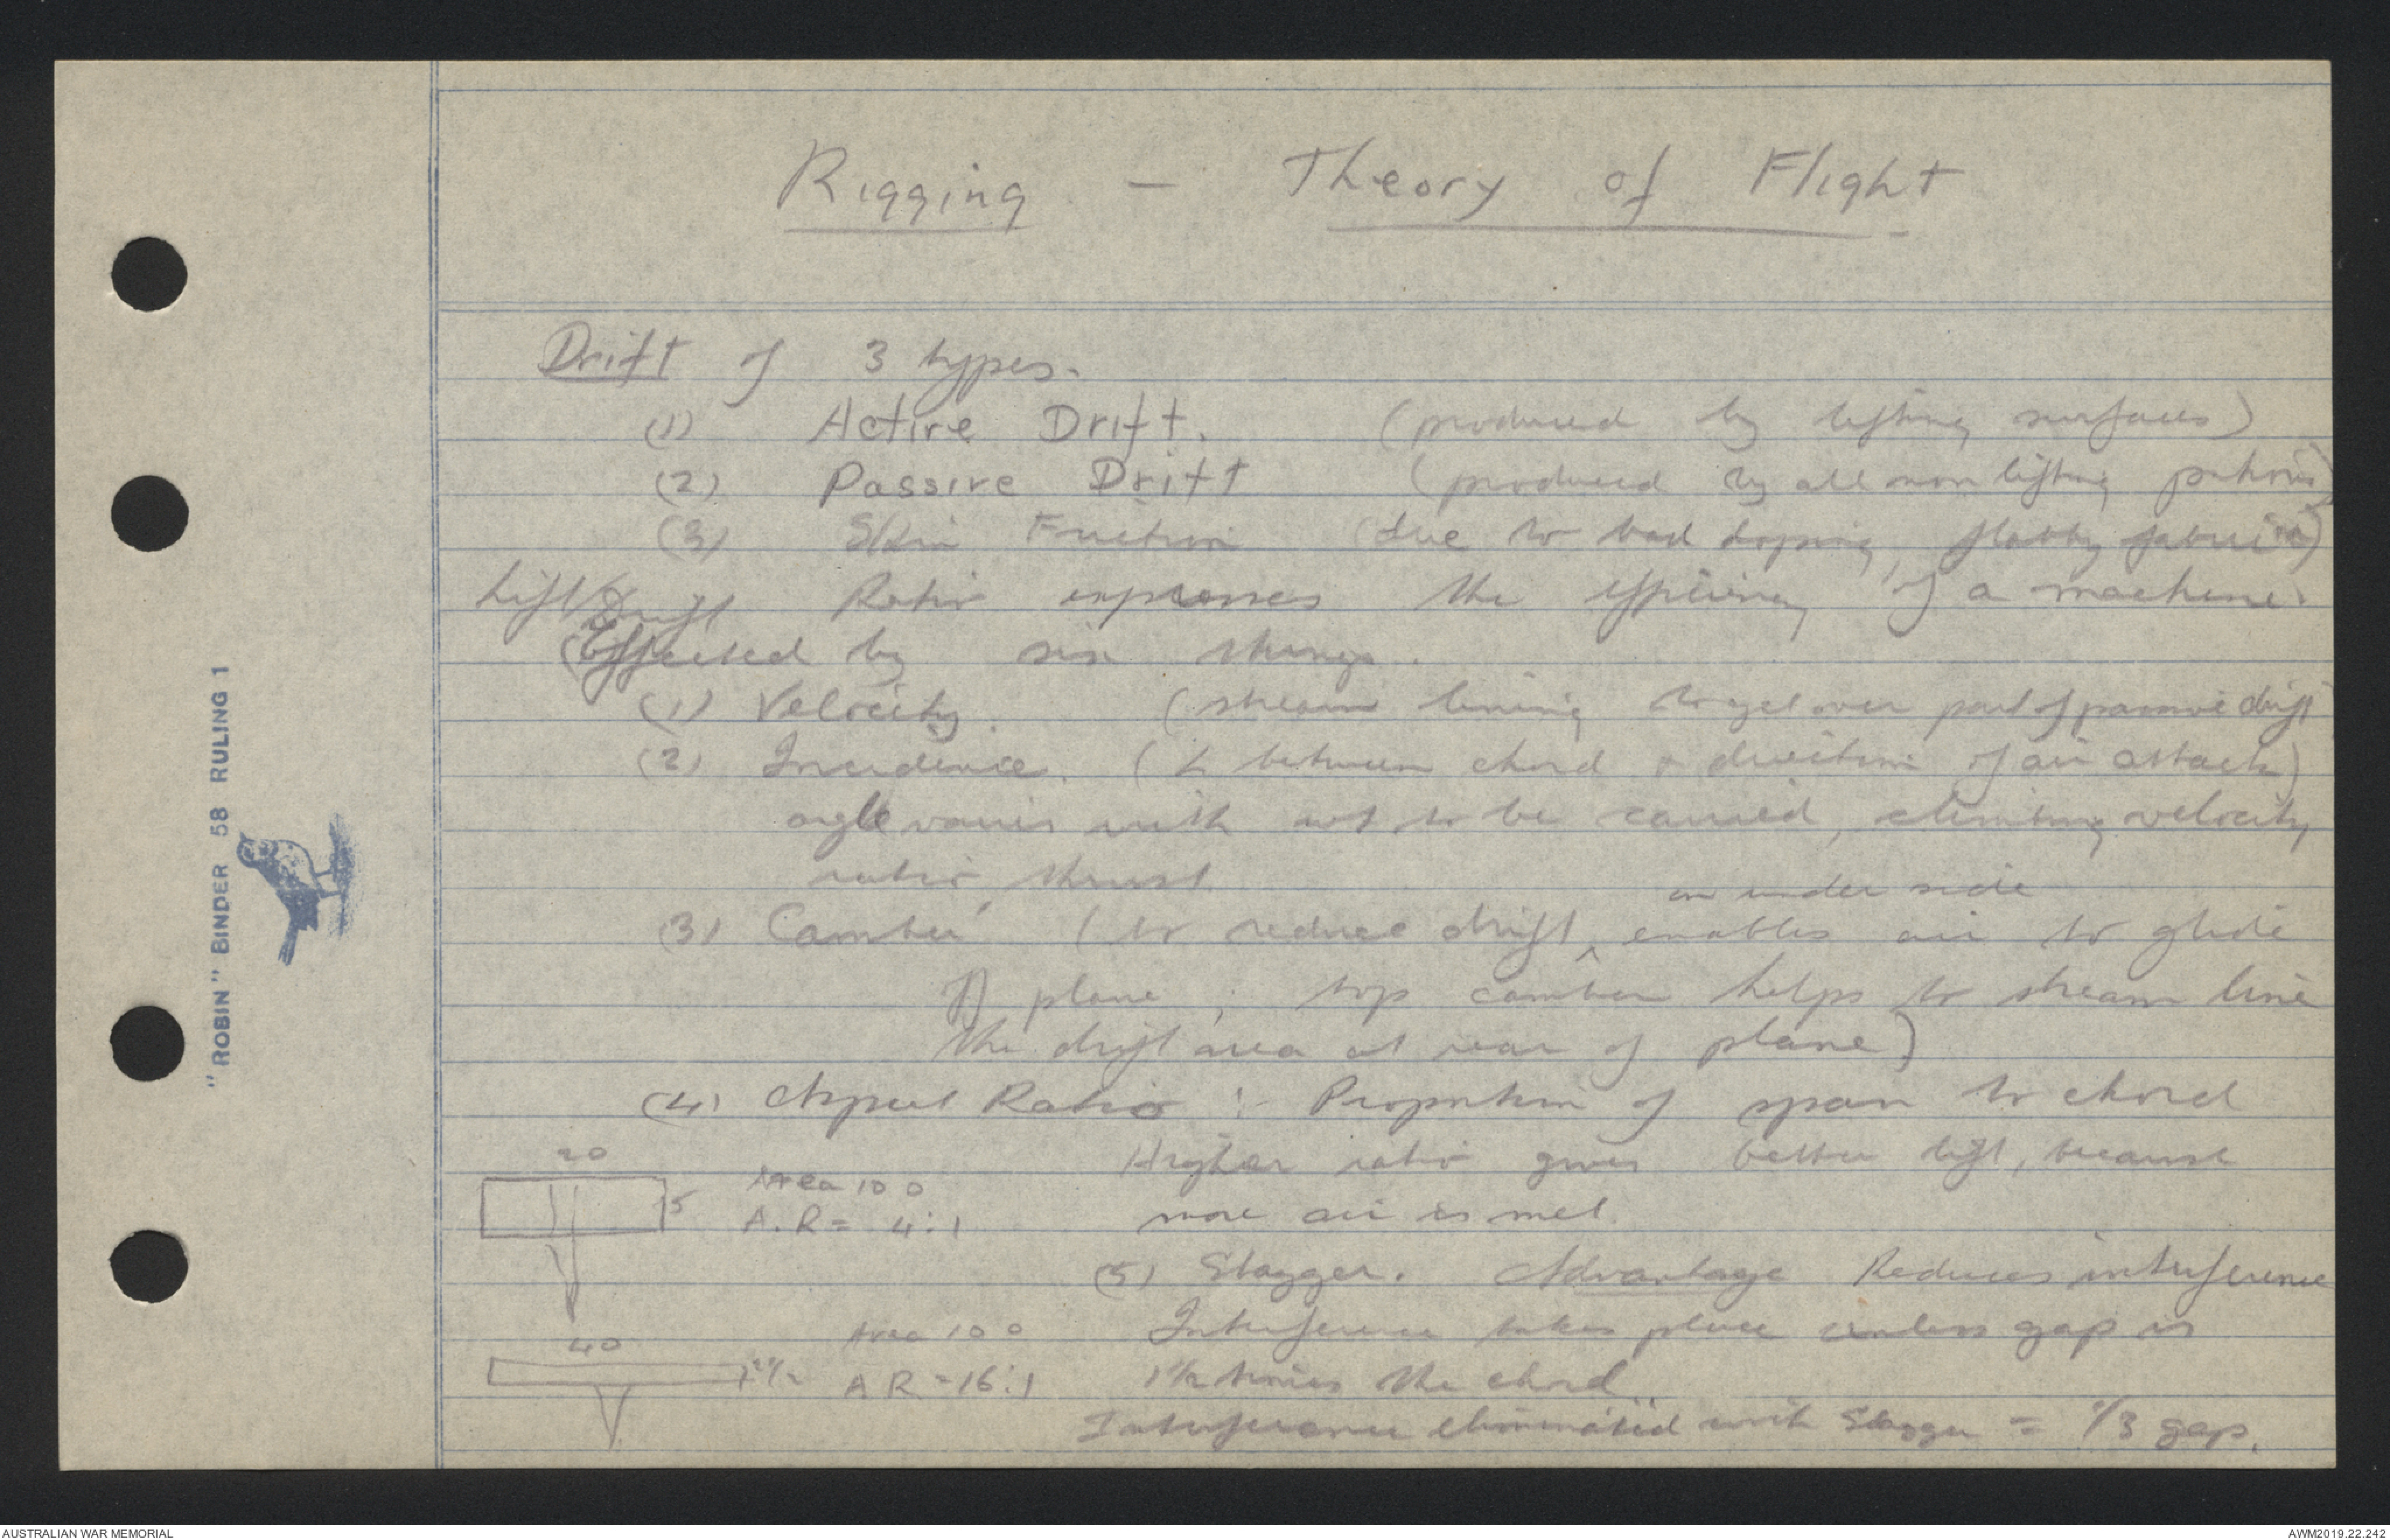 Rigging - Theory of Flight
Drift of 3 types.
(1) Active Drift. (produced by lifting surfaces)
(2) Passive Drift (produced by all non lifting portions)
(3) Skin Friction (due to bad doping, flabby fabric)
Lift/Drift Ratio expresses the efficiency of a machine.
(Effected by six things.
(1) Velocity. (stream lining to get over part of passive drift
(2) Incidence. (∠ between chord & direction of air attack)
angle varies with wt to be carried, climbing velocity
ratio, thrust
on under side
(3) Camber (to reduce drift ^ enables air to glide
off plane; top camber helps to stream line
the drift area at rear of plane)
(4) Aspect Ratio :- Proportion of span to chord
20
5
Area 100
A.R = 4:1
Higher ratio gives better lift, because
more air is met.
(5) Stagger. Advantage Reduces interference
40
2½
Area 100
A R = 16:1
Interference takes place unless gap is
1½ times the chord.
Interference eliminated with Stagger = 1/3 gap.
"ROBIN" BINDER 58 RULING 1
AUSTRALIAN WAR MEMORIAL
AWM2019.22.242